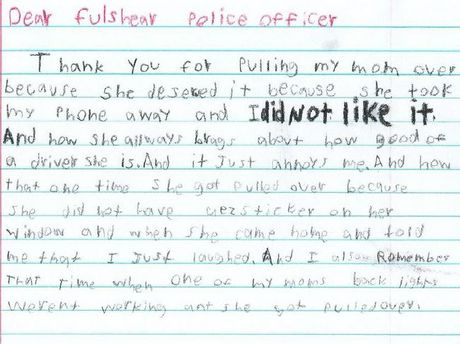 Dear fulshear Police officer
Thank You for Pulling my mom over
because she deserved it because she took
my Phone away and I did Not like it.
And how she allways brags about how good of
a driver she is. And it Just annoys me. And how
that one time she got Pulled over because
she did not have a ersticker on her
window and when she came home and told
me that I Just laughed. And I also Remember
That Time when one of my moms back lights
werent working ant she got Pulled over.